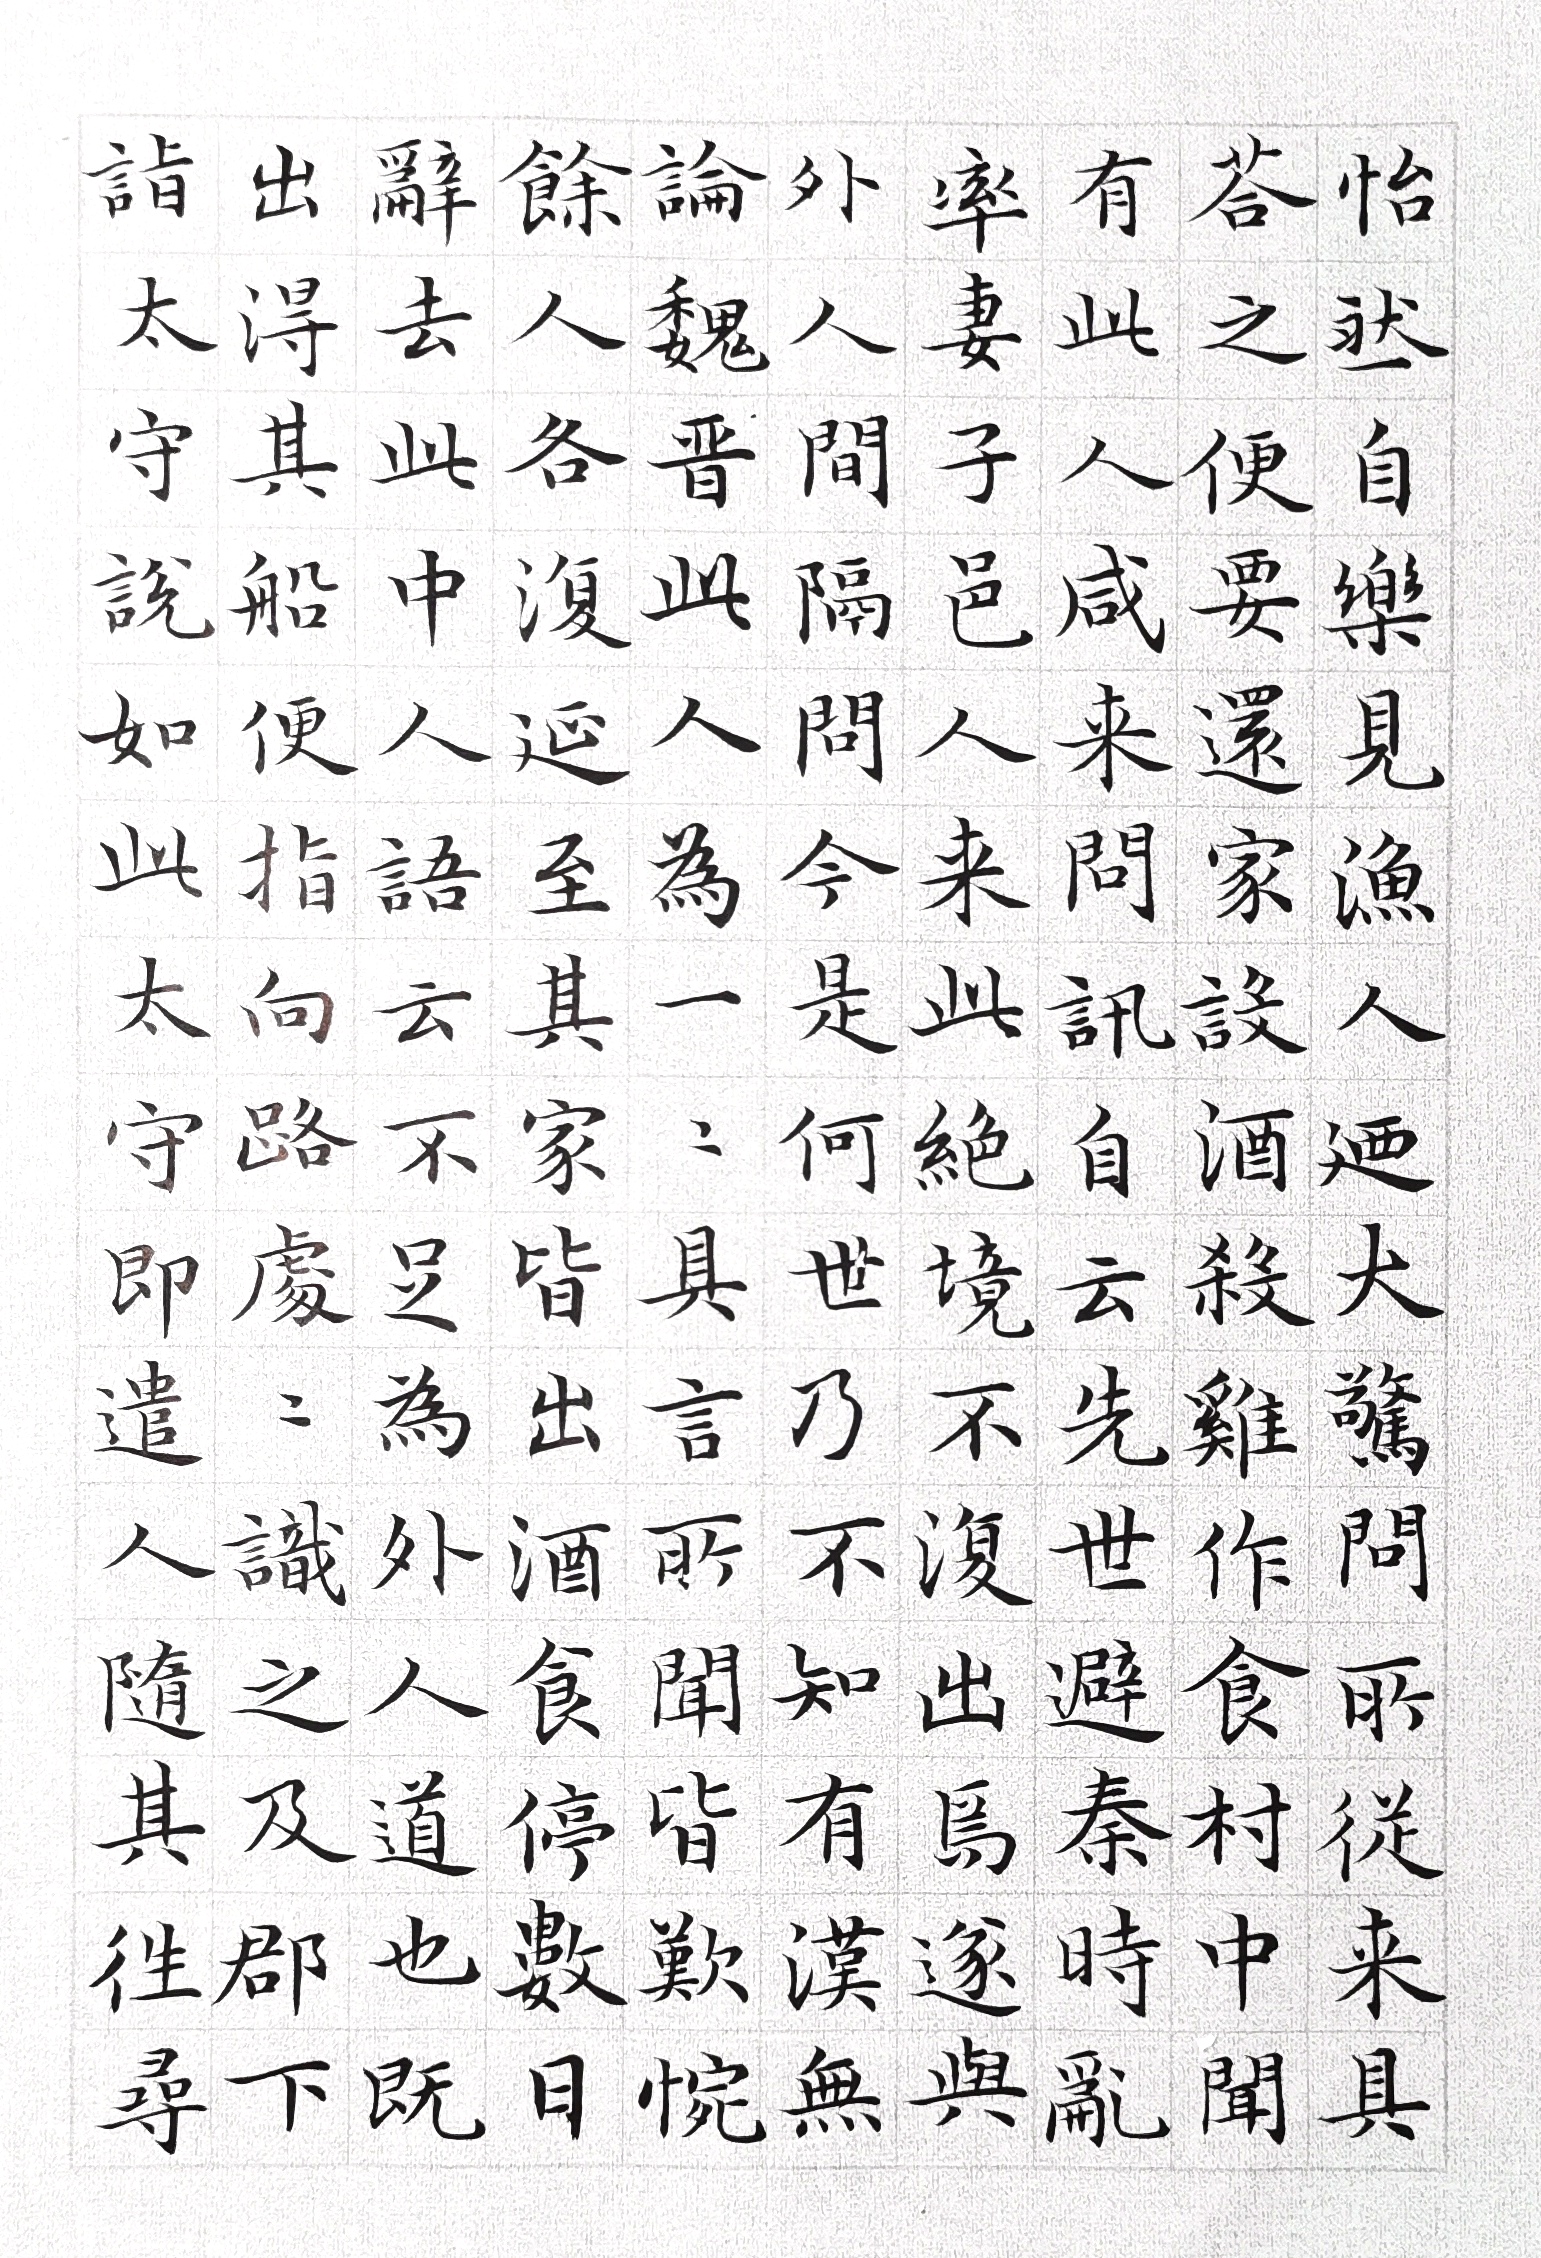 怡然自樂見漁人廼大驚問所從来具
荅之便要還家設酒殺雞作食村中聞
有此人咸来問訊自云先世避秦時亂
率妻子邑人来此絶境不復出焉遂與
外人間隔問今是何世乃不知有漢無
論魏晋此人為一〻具言所聞皆歎惋
餘人各復延至其家皆出酒食停數日
辭去此中人語云不足為外人道也既
出得其船便指向路處〻識之及郡下
詣太守説如此太守即遣人隨其往尋